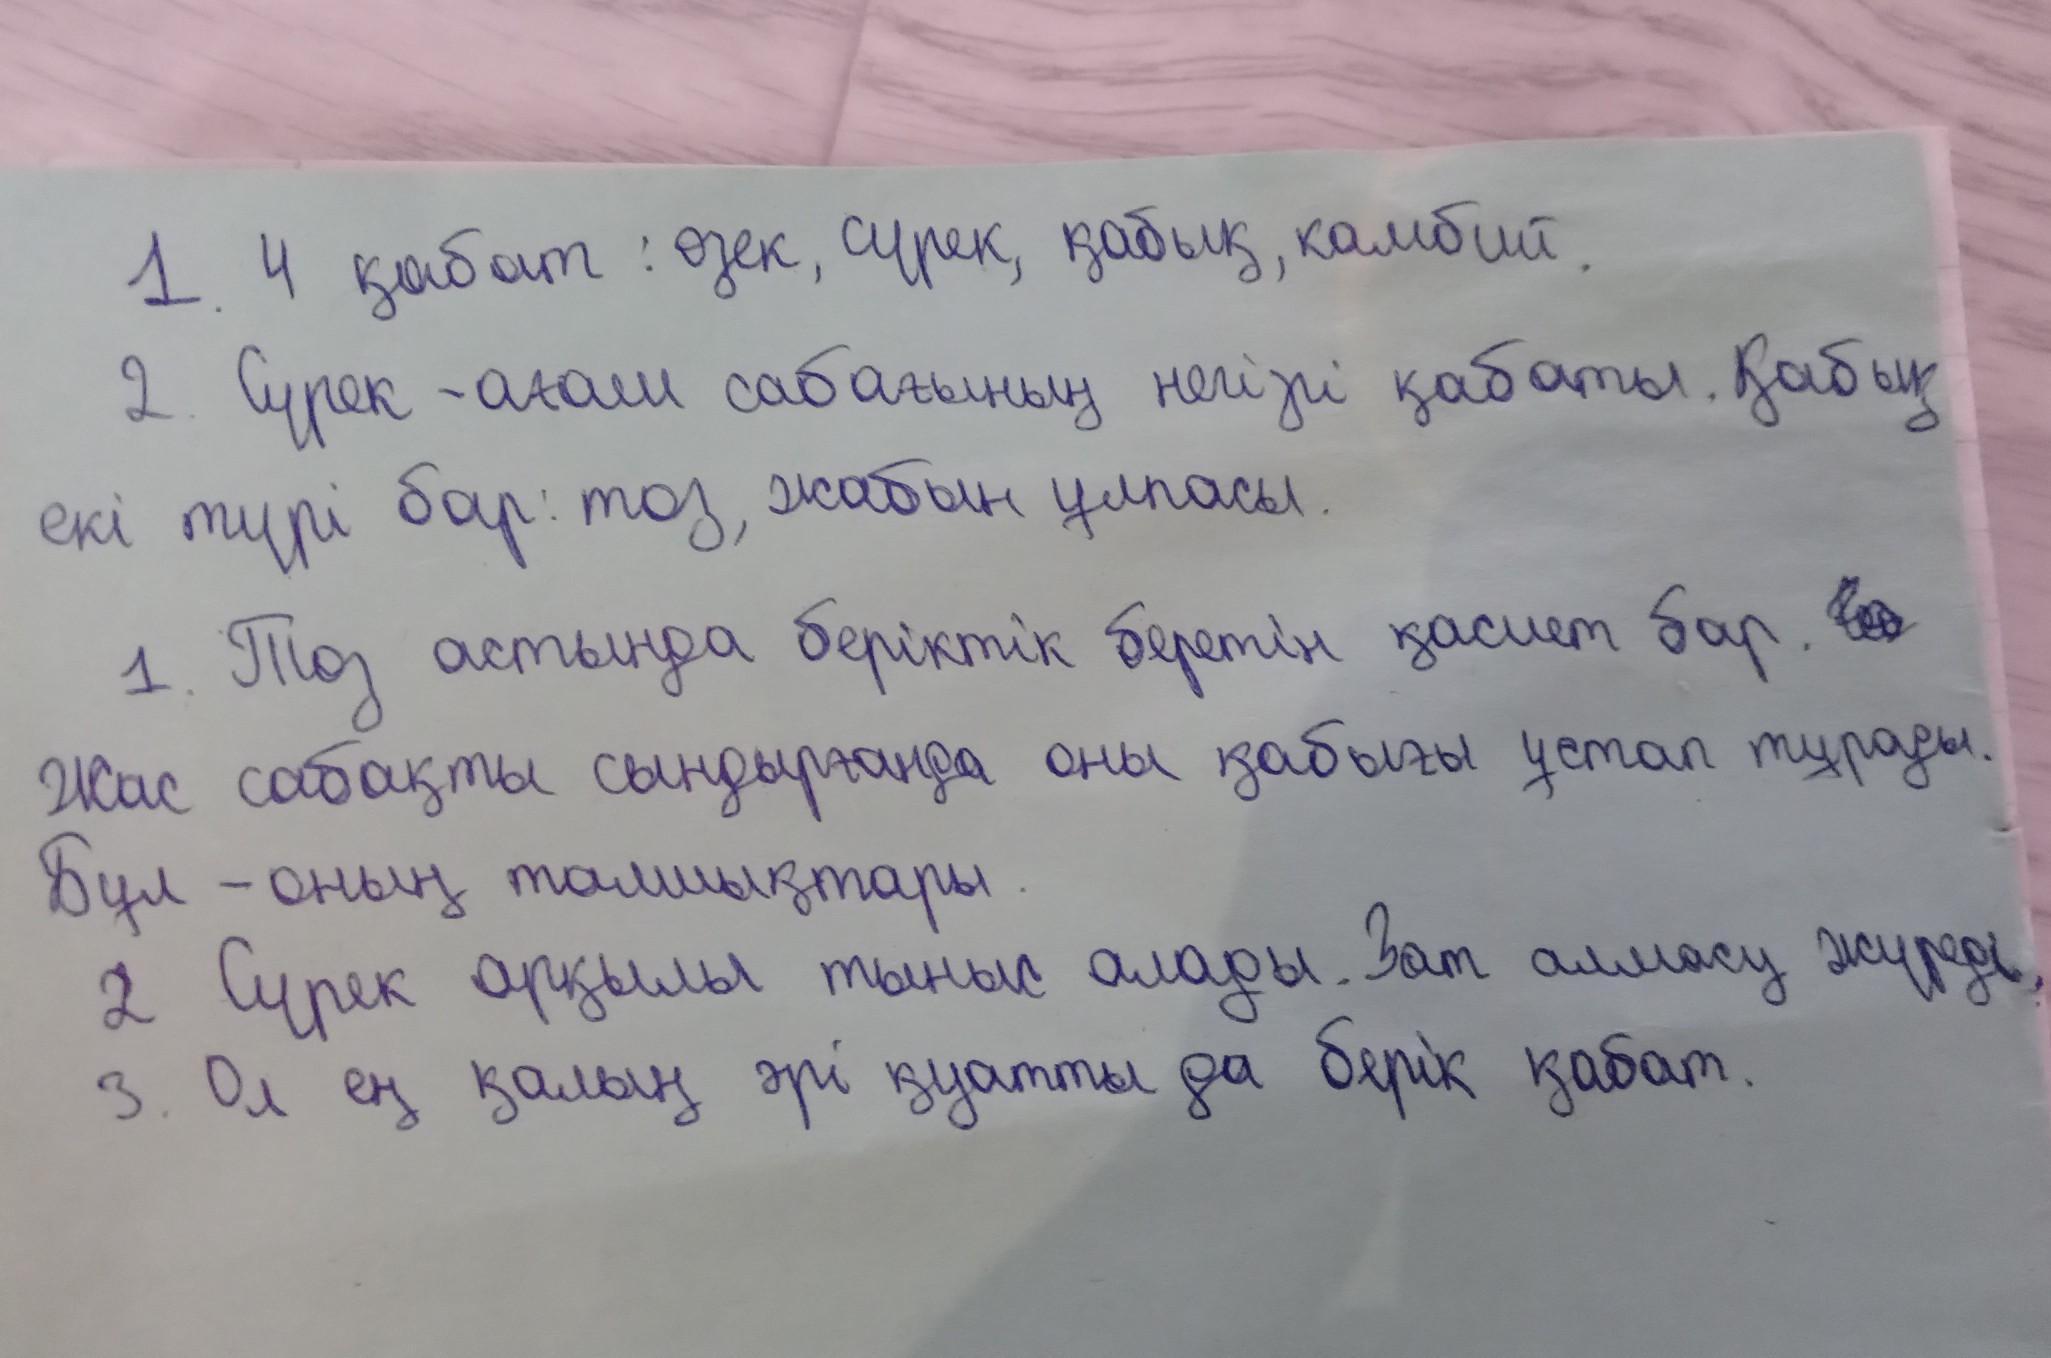 1. 4 қабат : өзек, сүрек, қабық, камбий.
2. Сүрек - ағаш сабағының негізгі қабаты. Қабық
екі түрі бар: тоз, жабын ұлпасы.
1. Тоз астында беріктік беретін қасиет бар.
Жас сабақты сындырғанда оны қабығы ұстап тұрады.
Бұл - оның талшықтары.
2 Сүрек арқылы тыныс алады. Зат алмасу жүреді.
3. Ол ең қалың әрі қуатты да берік қабат.